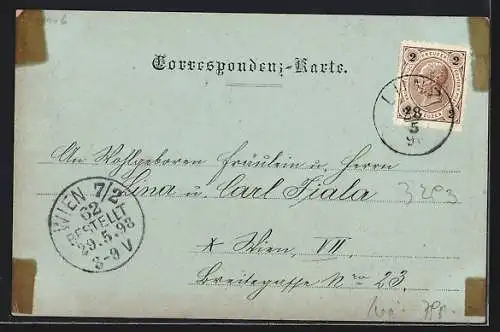 Correspondenz-Karte.
2 KREUZER 2
28
5
An Wohlgeboren Fräulein u. Herrn
Lina u. Carl Fiala
3293
Wien, VII
Breitegasse Nro 23.
WIEN 7/2
62
BESTELLT
29.5.98
8-9 V